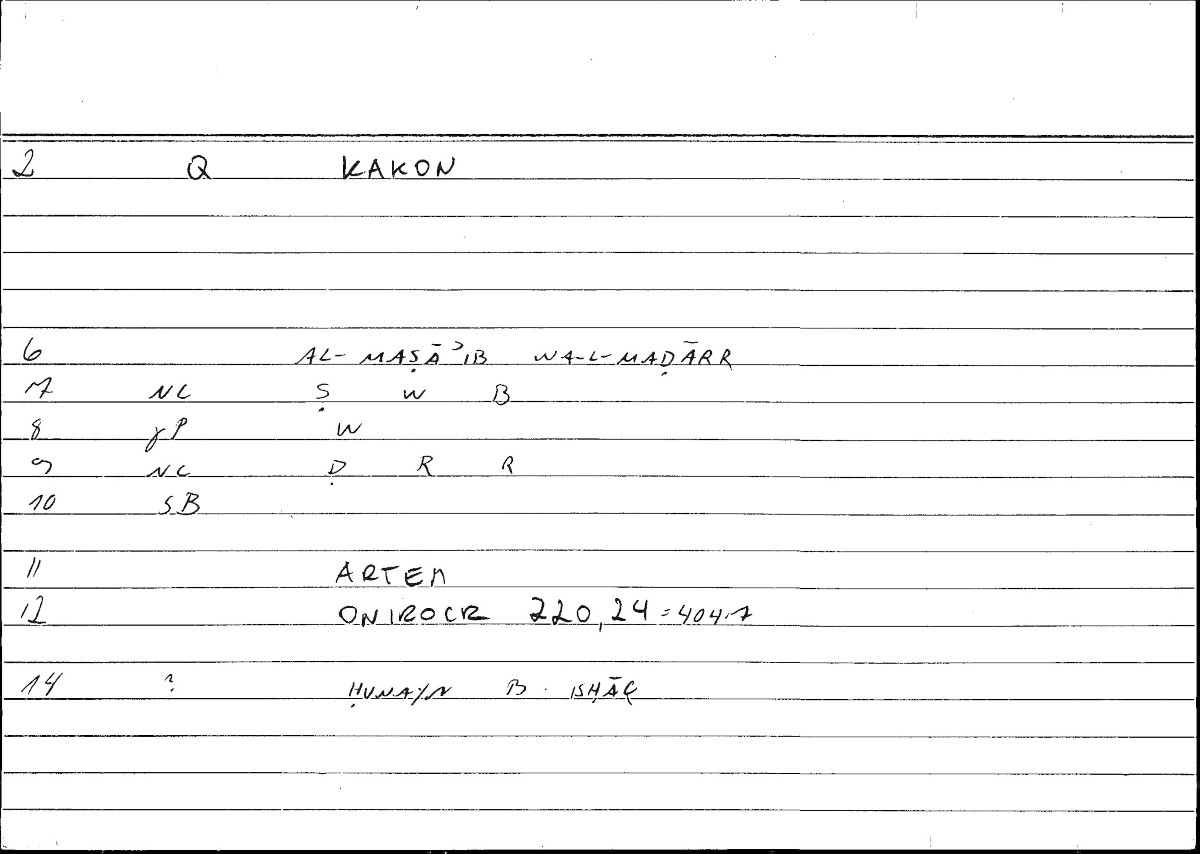 2 Q KAKON
6 AL-MAṢĀʾIB WA-L-MAḌĀRR
7 NC Ṣ W B
8 γP W
9 NC Ḍ R R
10 SB
11 ARTEM
12 ONIROCR 220,24 = 404.7
14 ? ḤUNAYN B. ISḤĀQ